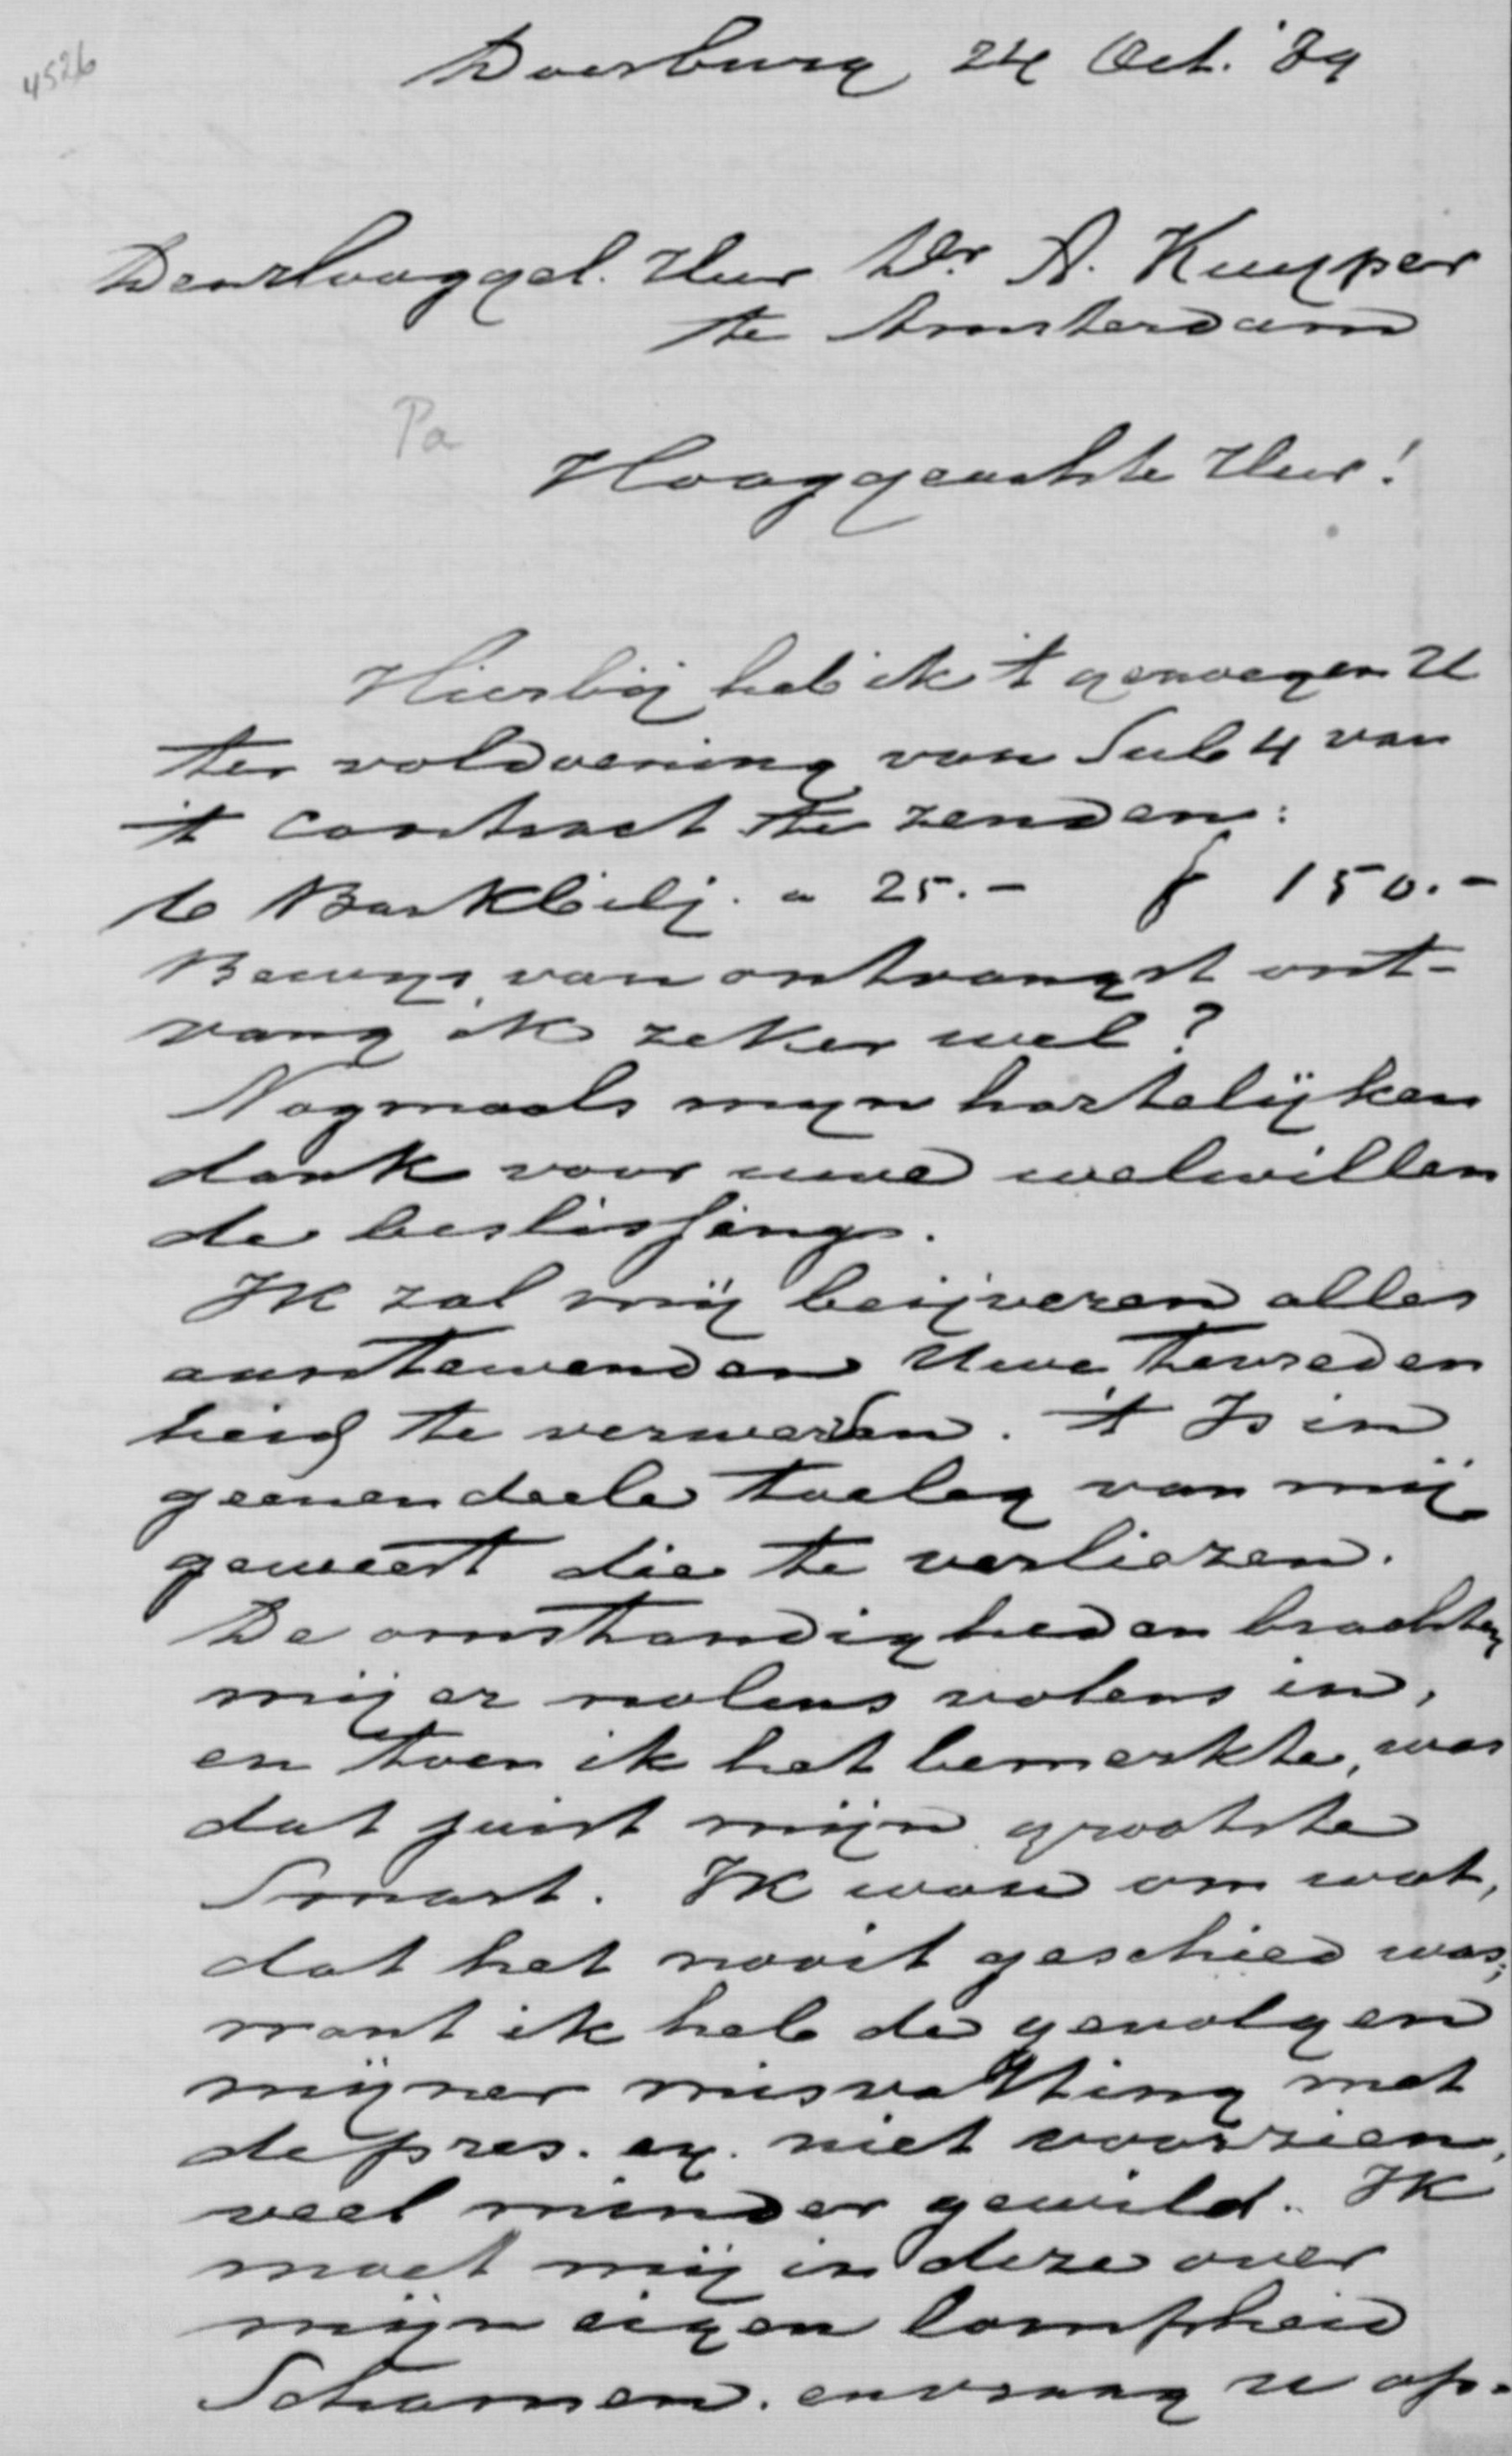 4526
Doesburg 24 Oct. '89
Denhooggel. Heer Dr. A. Kuyper
te Amsterdam
Pa
Hooggeachte Heer!
Hierbij heb ik 't genoegen U
ter voldoening van Sub 4 van
't contract te zenden:
6 Bankbilj. a 25.- f 150.-
Bewijs van ontvangst ont-
vang ik zeker wel?
Nogmaals mijn hartelijken
dank voor uwe welwillen
de beslissing.
Ik zal mij beijveren alles
aantewenden Uwe tevreden
heid te verwerven. 't Is in
geenen deele toeleg van mij
geweest die te verliezen.
De omstandigheden brachten
mij er nolens volens in,
en toen ik het bemerkte, was
dat juist mijn grootste
Smart. Ik wou om wat,
dat het nooit geschied was;
want ik heb de gevolgen
mijner misvatting met
de pres. ex. niet voorzien,
veel minder gewild. Ik
moet mij in deze over
mijn eigen lompheid
Schamen. en vraag u op-